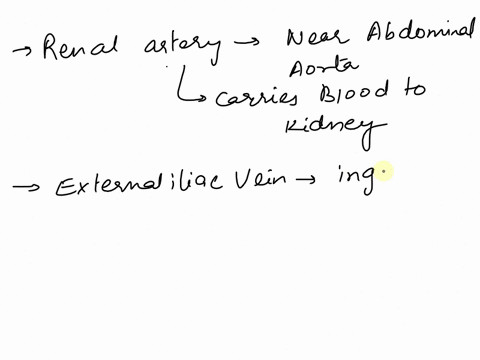 → Renal artery → Near Abdominal
Aorta
↳ Carries Blood to
Kidney
→ External iliac Vein → ing